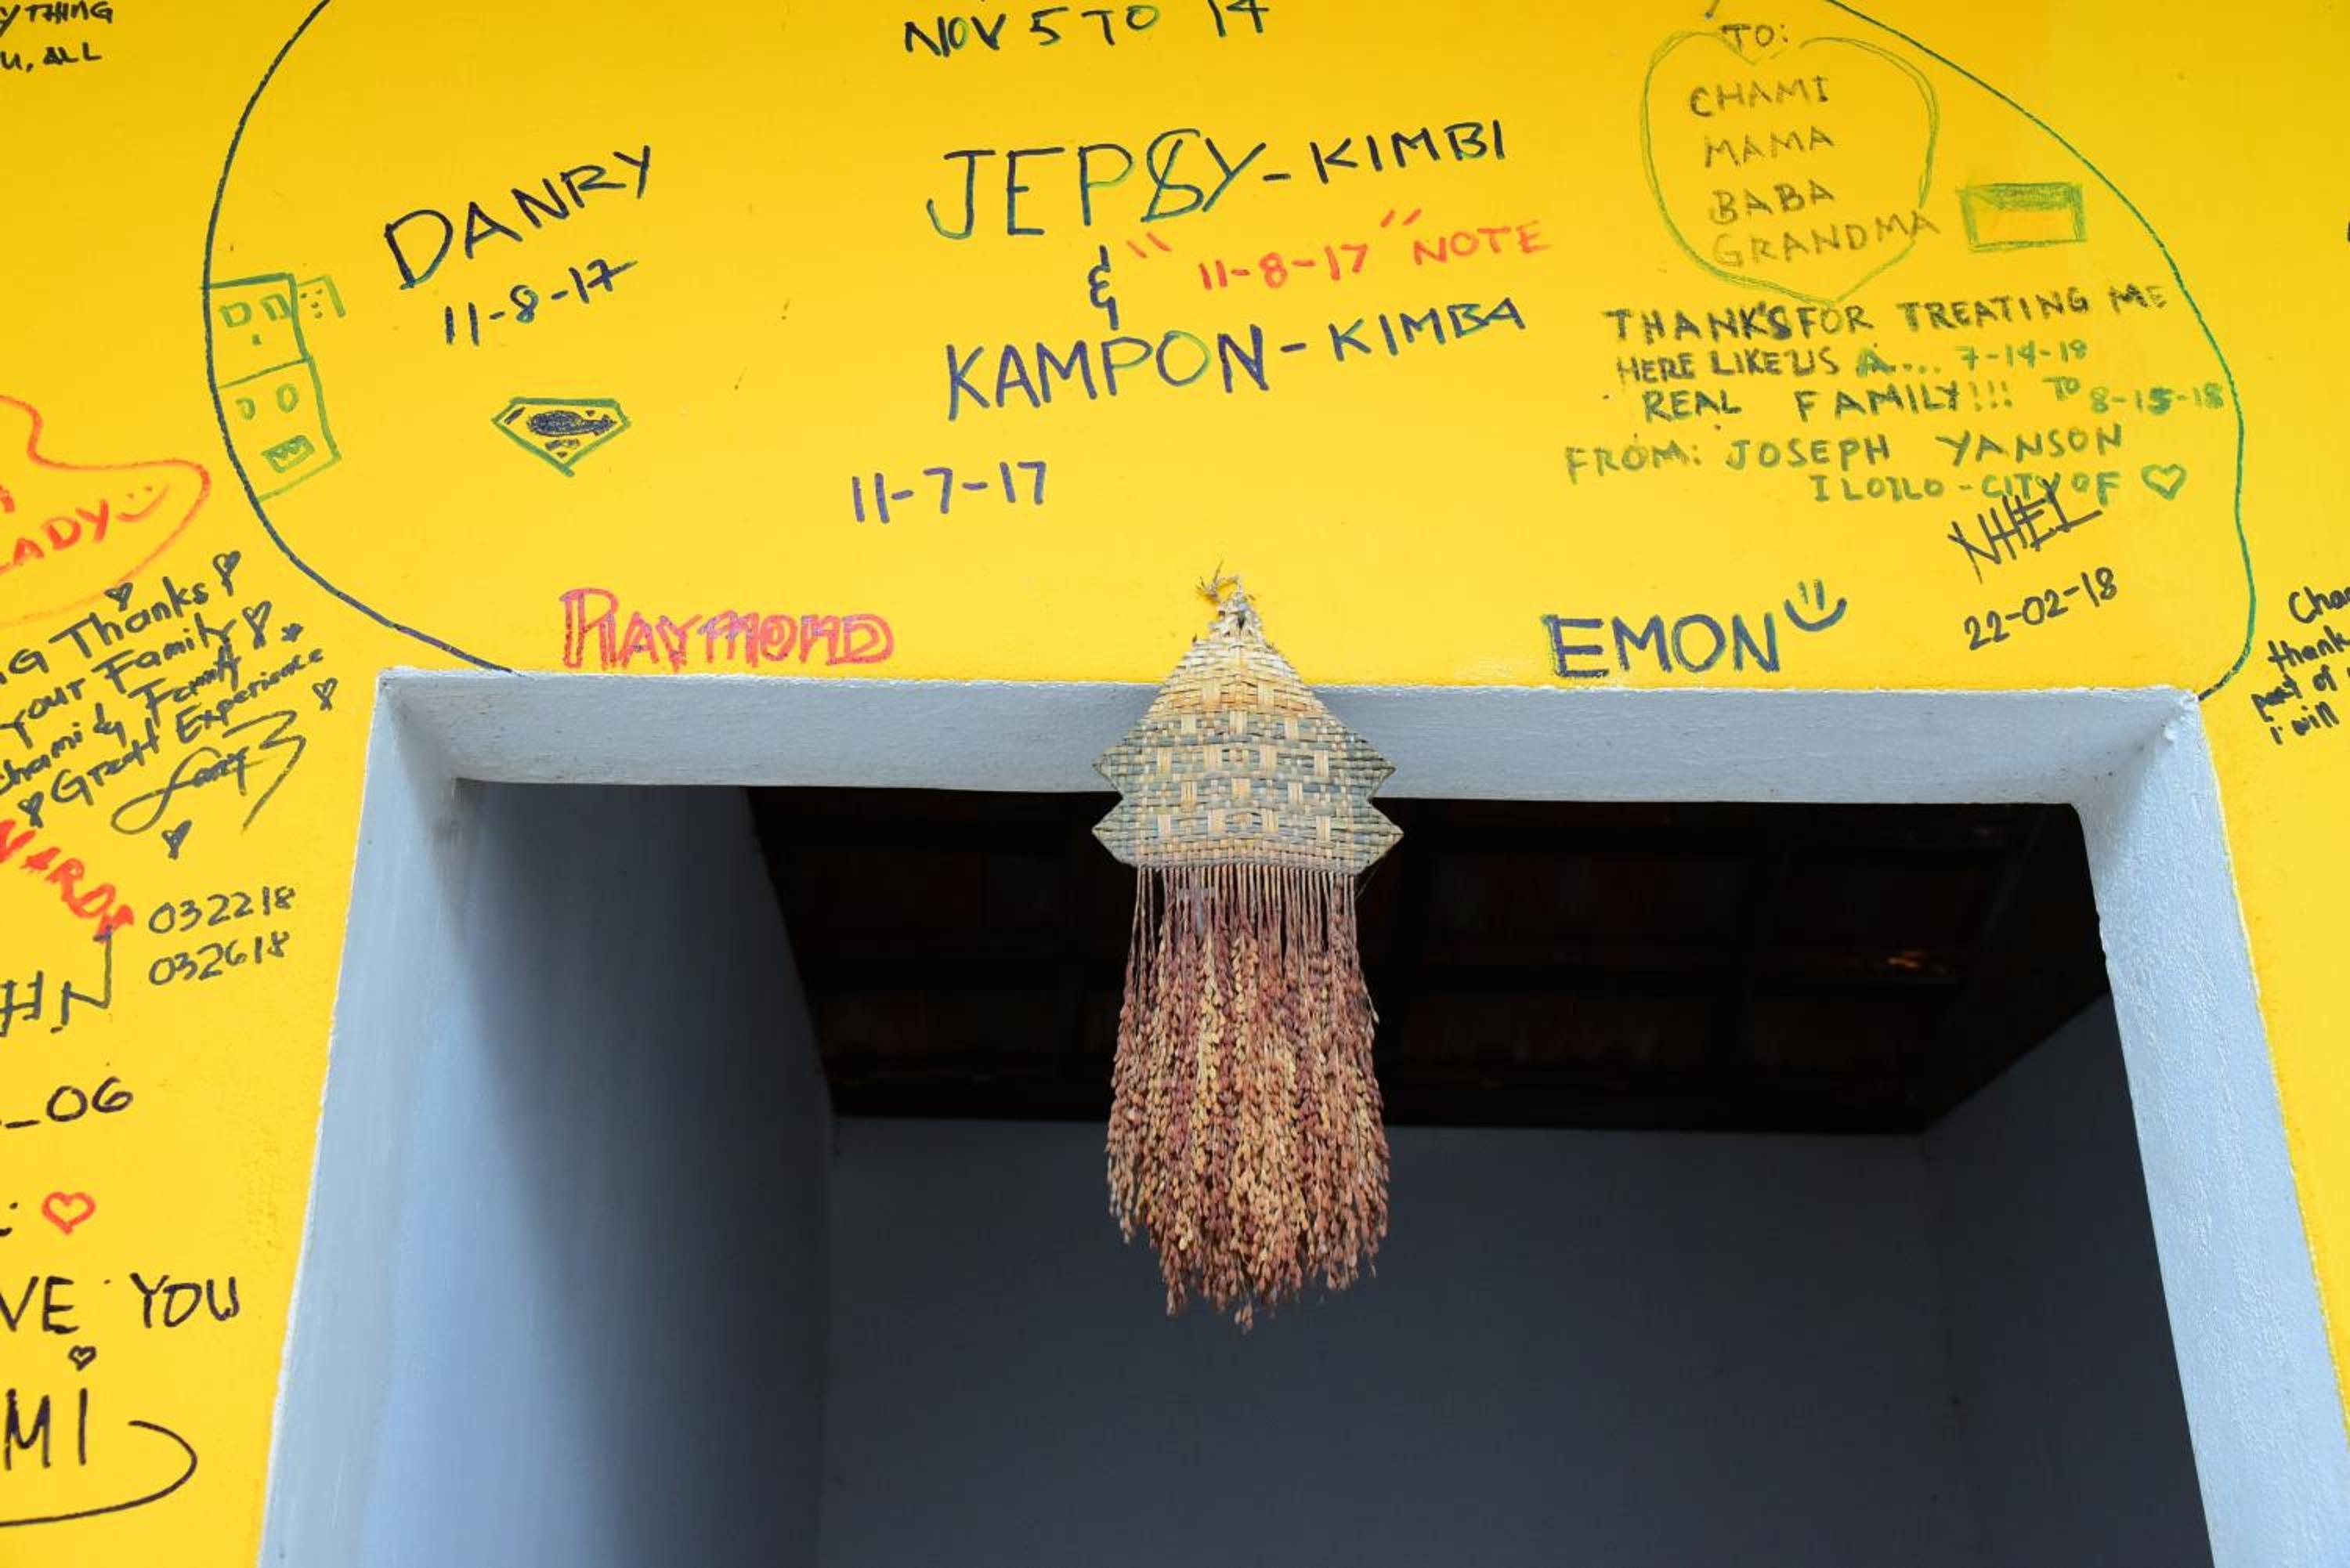 YTHING
U, ALL
NOV 5 TO 14
DANRY
11-8-17
JEPSY-KIMBI
&
"11-8-17" NOTE
KAMPON-KIMBA
11-7-17
TO:
CHAMI
MAMA
BABA
GRANDMA
THANK'S FOR TREATING ME
HERE LIKE US A.... 7-14-18
REAL FAMILY!!! TO 8-15-18
FROM: JOSEPH YANSON
ILOILO-CITY OF
NHEL
22-02-18
RAYMOND
EMON
ADY
G Thanks
your Family
hami & Family
Great Experience
032218
032618
HN
_06
VE YOU
MI
Cha
thank
part of
i will